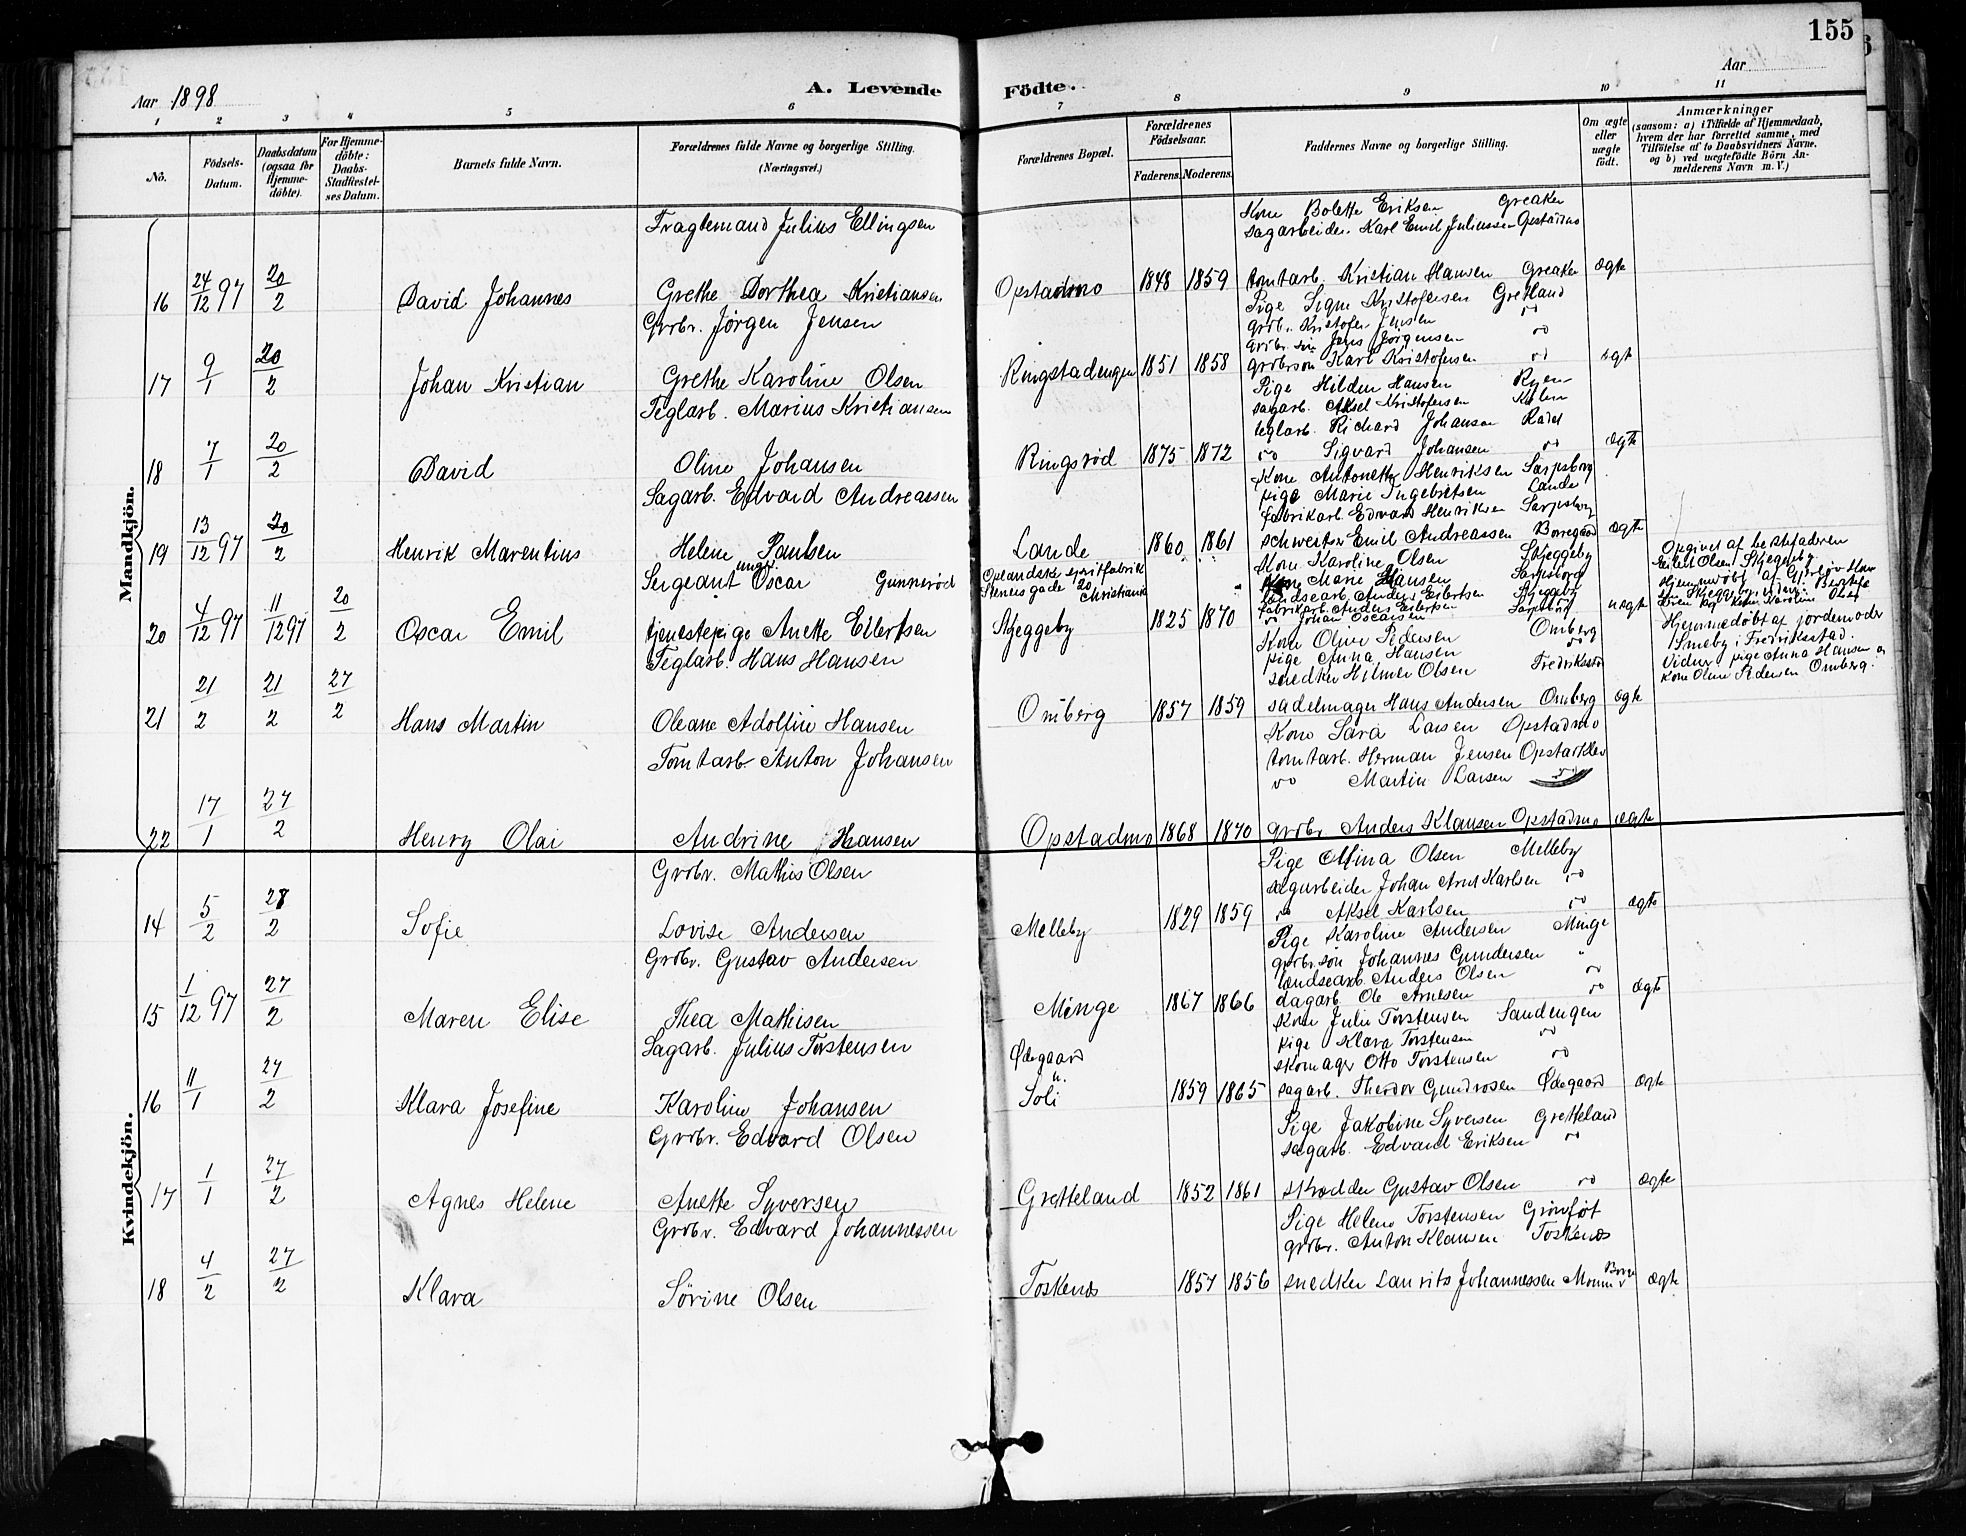 155
Aar 1898
A. Levende Födte.
Aar
1 2 3 4 5 6 7 8 9 10 11
No.
Födsels-Datum.
Daabsdatum (ogsaa för Hjemme-döbte).
For Hjemme-döbte: Daabs-Stadfestel-ses Datum.
Barnets fulde Navn.
Forældrenes fulde Navne og borgerlige Stilling. (Næringsvei.)
Forældrenes Bopæl.
Forældrenes Födselsaar.
Faderens. Moderens.
Faddernes Navne og borgerlige Stilling.
Om ægte eller uægte födt.
Anmærkninger
(saasom: a) i Tilfælde af Hjemmedaab, hvem der har forrettet samme, med Tilföielse af to Daabsvidners Navne. og b) ved uægtefödte Börn Anmelderens Navn m. V.)
Mandkjön.
Fragtemand Julius Ellingsen
Kone Bolette Eriksen Greaker
Sagarbeider Karl Emil Juliussen Opstadmo
16 24/12 97 20/2 David Johannes Grethe Dorthea Kristiansen Opstadmo 1848 1859 tomtarb. Kristian Hansen Greaker ægte
Pige Signe Kristofersen Gretland
Grdbr. Jørgen Jensen
grdbr. Kristofer Jensen do
grdbr. søn Jens Jørgensen do
17 9/1 20/2 Johan Kristian Grethe Karoline Olsen Ringstadengen 1851 1858 grdbrsøn Karl Kristofersen do ægte
Pige Hilden Hansen Ryen
Teglarb. Marius Kristiansen
sagarb. Aksel Kristofersen
teglarb. Richard Johansen Radet
18 7/1 20/2 David Oline Johansen Ringsrød 1875 1872 do Sigvard Johansen do ægte
Kone Antonette Henriksen Sarpsborg
Sagarb. Edvard Andreassen
pige Marie Ingebretsen Lande
fabrikarb. Edvard Henriksen Sarpsborg
19 13/12 97 20/2 Henrik Marentius Helene Paulsen Lande 1860 1861 schweitser Emil Andreassen Boregaard ægte
Kone Karoline Olsen Skjeggeby
Sergeant ungk. Oscar Gunnerød
Oplandsk spritfabrik
Stenersgade 20 Christiania
Kone Marie Hansen Sarpsborg
landsearb. Anders Eilertsen Skjeggeby
fabrikarb. Anders Eilertsen Sarpsborg
20 4/12 97 11/12 97 20/2 Oscar Emil tjenestepige Anette Eilertsen Skjeggeby 1825 1870 do Johan Oscarsen uægte
Opgivet af bestefaderen
Eilert Olsen Skjeggeby.
Kone Oline Pedersen Omberg
Teglarb. Hans Hansen
pige Anna Hansen do
snedker Hilmer Olsen Fredriksstad
Hjemmedøbt af jordemoder
Smeby i Fredrikstad.
Vidner pige Anna Hansen og
Kone Oline Pedersen Omberg.
21 21/2 21/2 27/2 Hans Martin Oleane Adolfine Hansen Omberg 1857 1859 sadelmager Hans Andersen Omberg ægte
Kone Sara Larsen Opstadmo
Tomtarb. Anton Johansen
tomtarb. Herman Jensen
do Martin Larsen do
22 17/1 27/2 Henry Olai Andrine Hansen Opstadmo 1868 1870 grdbr. Anders Klausen Opstadmo ægte
Kvindekjön.
Grdbr. Mathis Olsen
Pige Mina Olsen Melleby
sagarbeider Johan Arnt Karlsen do
14 5/2 28/2 Sofie Lovise Andersen Melleby 1829 1859 do Aksel Karlsen do ægte
Pige Karoline Andersen Minge
Grdbr. Gustav Andersen
grdbr. søn Johannes Gundersen "
landsearb. Anders Olsen do
15 1/12 97 27/2 Maren Elise Thea Mathisen Minge 1867 1866 dagarb. Ole Arnesen do ægte
Kone Julie Torstensen Sandengen
Sagarb. Julius Torstensen
Ødegaard
pige Klara Torstensen do
skomager Otto Torstensen do
16 11/1 27/2 Klara Josefine Karoline Johansen u. Soli 1859 1865 sagarb. Theodor Gundrosen Ødegaard ægte
Pige Jakobine Syversen Gretteland
Grdbr. Edvard Olsen
sagarb. Edvard Eriksen do
17 1/1 27/2 Agnes Helene Anette Syversen Gretteland 1852 1861 skrædder Gustav Olsen do ægte
Pige Helene Torstensen Grønføt
Grdbr. Edvard Johannessen
grdbr. Anton Klausen Toskenæs
18 4/2 27/2 Klara Sørine Olsen Toskenæs 1857 1856 snedker Laurits Johannessen ægte